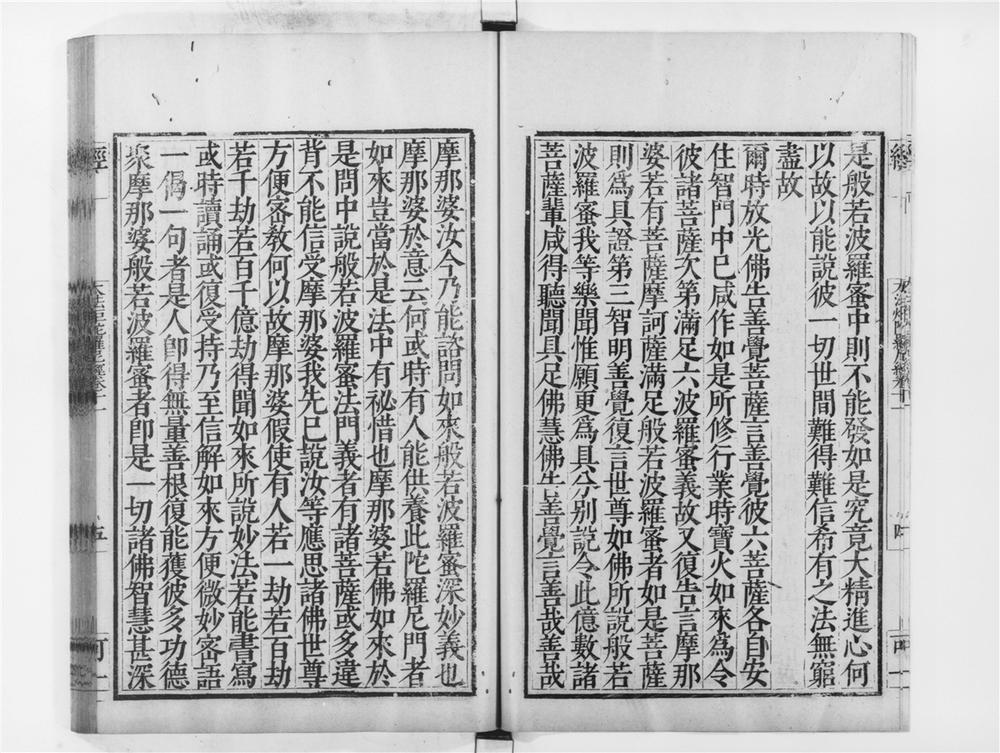 是般若波羅蜜中則不能發如是究竟大精進心何
以故以能說彼一切世間難得難信希有之法無窮
盡故
爾時放光佛告善覺菩薩言善覺彼六菩薩各自安
住智門中已咸作如是所修行業時寶火如來為令
彼諸菩薩次第滿足六波羅蜜義故又復告言摩那
婆若有菩薩摩訶薩滿足般若波羅蜜者如是菩薩
則為具證第三智明善覺復言世尊如佛所說般若
波羅蜜我等樂聞惟願更為具分別說令此億數諸
菩薩輩咸得聽聞具足佛慧佛告善覺言善哉善哉
摩那婆汝今乃能諮問如來般若波羅蜜深妙義也
摩那婆於意云何或時有人能供養此陀羅尼門者
如來豈當於是法中有祕惜也摩那婆若佛如來於
是問中說般若波羅蜜法門義者有諸菩薩或多違
背不能信受摩那婆我先已說汝等應思諸佛世尊
方便密敎何以故摩那婆假使有人若一劫若百劫
若千劫若百千億劫得聞如來所說妙法若能書寫
或時讀誦或復受持乃至信解如來方便微妙密語
一偈一句者是人卽得無量善根復能獲彼多功德
聚摩那婆般若波羅蜜者卽是一切諸佛智慧甚深
經
五